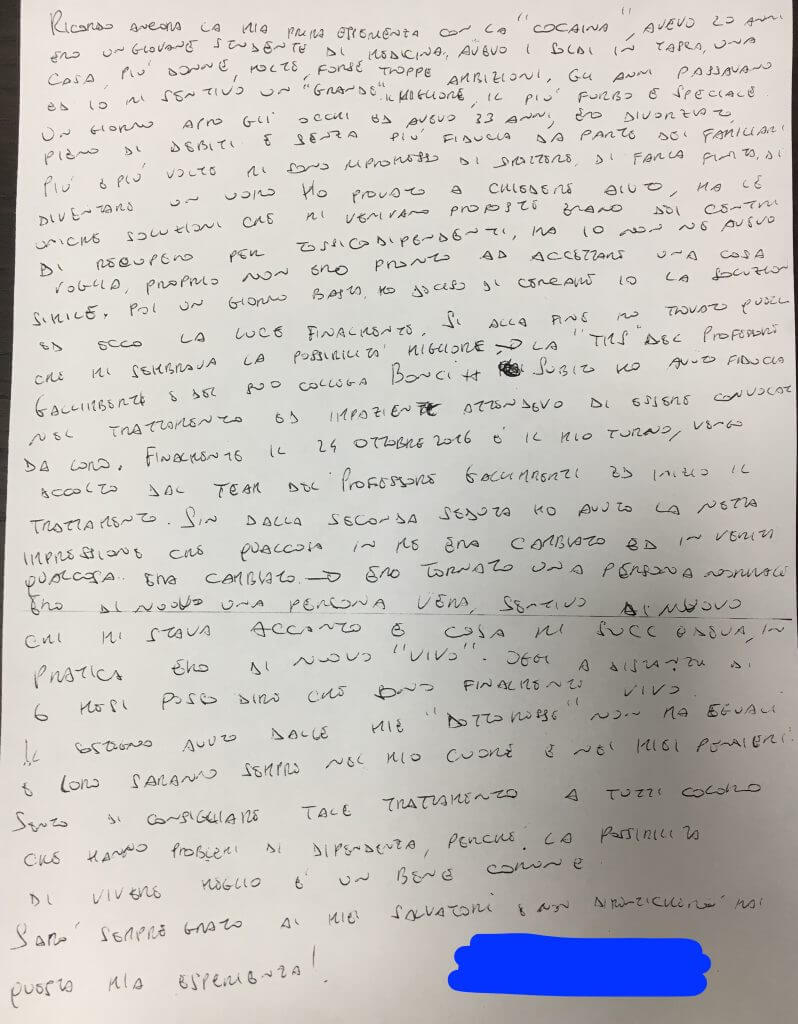 RICORDO ANCORA LA MIA PRIMA ESPERIENZA CON LA "COCAINA", AVEVO 20 ANNI
ERO UN GIOVANE STUDENTE DI MEDICINA, AVEVO I SOLDI IN TASCA, UNA
CASA, PIU' DONNE, MOLTE, FORSE TROPPE AMBIZIONI, GLI ANNI PASSAVANO
ED IO MI SENTIVO UN "GRANDE" IL MIGLIORE, IL PIU' FURBO E SPECIALE.
UN GIORNO APRO GLI OCCHI ED AVEVO 33 ANNI, ERO DIVORZIATO,
PIENO DI DEBITI E SENZA PIU' FIDUCIA DA PARTE DEI FAMILIARI
PIU' E PIU' VOLTE MI SONO RIPROMESSO DI SMETTERE, DI FARLA FINITA, DI
DIVENTARE UN UOMO HO PROVATO A CHIEDERE AIUTO, MA LE
UNICHE SOLUZIONI CHE MI VENIVANO PROPOSTE ERANO DEI CENTRI
DI RECUPERO PER TOSSICODIPENDENTI, MA IO NON NE AVEVO
VOGLIA, PROPRIO NON ERO PRONTO AD ACCETTARE UNA COSA
SIMILE. POI UN GIORNO BASTA, HO DECISO DI CERCARE IO LA SOLUZION
ED ECCO LA LUCE FINALMENTE. SI ALLA FINE HO TROVATO QUELL
CHE MI SEMBRAVA LA POSSIBILITA' MIGLIORE → LA "TMS" DEL PROFESSORE
GALLIMBERTI E DEL SUO COLLEGA BONCI SUBITO HO AVUTO FIDUCIA
NEL TRATTAMENTO ED IMPAZIENTE ATTENDEVO DI ESSERE CONVOCAT
DA LORO. FINALMENTE IL 24 OTTOBRE 2016 E' IL MIO TURNO, VENGO
ACCOLTO DAL TEAM DEL PROFESSORE GALLIMBERTI ED INIZIO IL
TRATTAMENTO. SIN DALLA SECONDA SEDUTA HO AVUTO LA NETTA
IMPRESSIONE CHE QUALCOSA IN ME ERA CAMBIATO ED IN VERITA
QUALCOSA ERA CAMBIATO → ERO TORNATO UNA PERSONA NORMALE
ERO DI NUOVO UNA PERSONA VERA, SENTIVO DI NUOVO
CHI MI STAVA ACCANTO E COSA MI SUCCEDEVA, IN
PRATICA ERO DI NUOVO "VIVO". OGGI A DISTANZA DI
6 MESI POSSO DIRE CHE SONO FINALMENTE VIVO.
IL SOSTEGNO AVUTO DALLE MIE "DOTTORESSE" NON HA EGUALI
E LORO SARANNO SEMPRE NEL MIO CUORE E NEI MIEI PENSIERI.
SENTO DI CONSIGLIARE TALE TRATTAMENTO A TUTTI COLORO
CHE HANNO PROBLEMI DI DIPENDENZA, PERCHE' LA POSSIBILITA
DI VIVERE MEGLIO E' UN BENE COMUNE.
SARO' SEMPRE GRATO AI MIEI SALVATORI E NON DIMENTICHERO' MAI
QUESTA MIA ESPERIENZA!